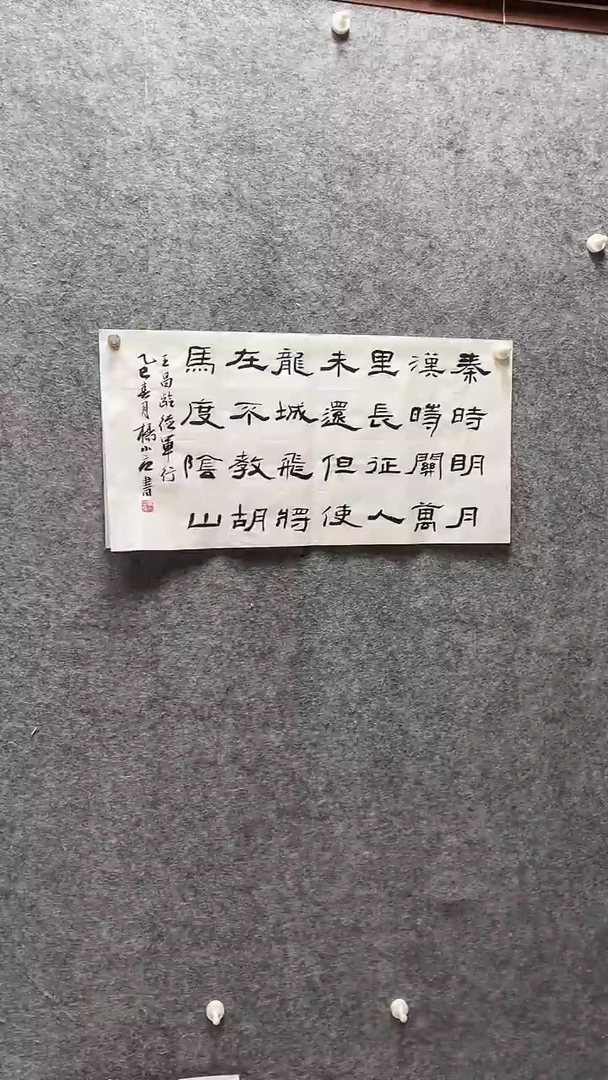 秦時明月
漢時關萬
里長征人
未還但使
龍城飛將
在不教胡
馬度陰山
王昌龄從軍行
乙巳春月楊小石書